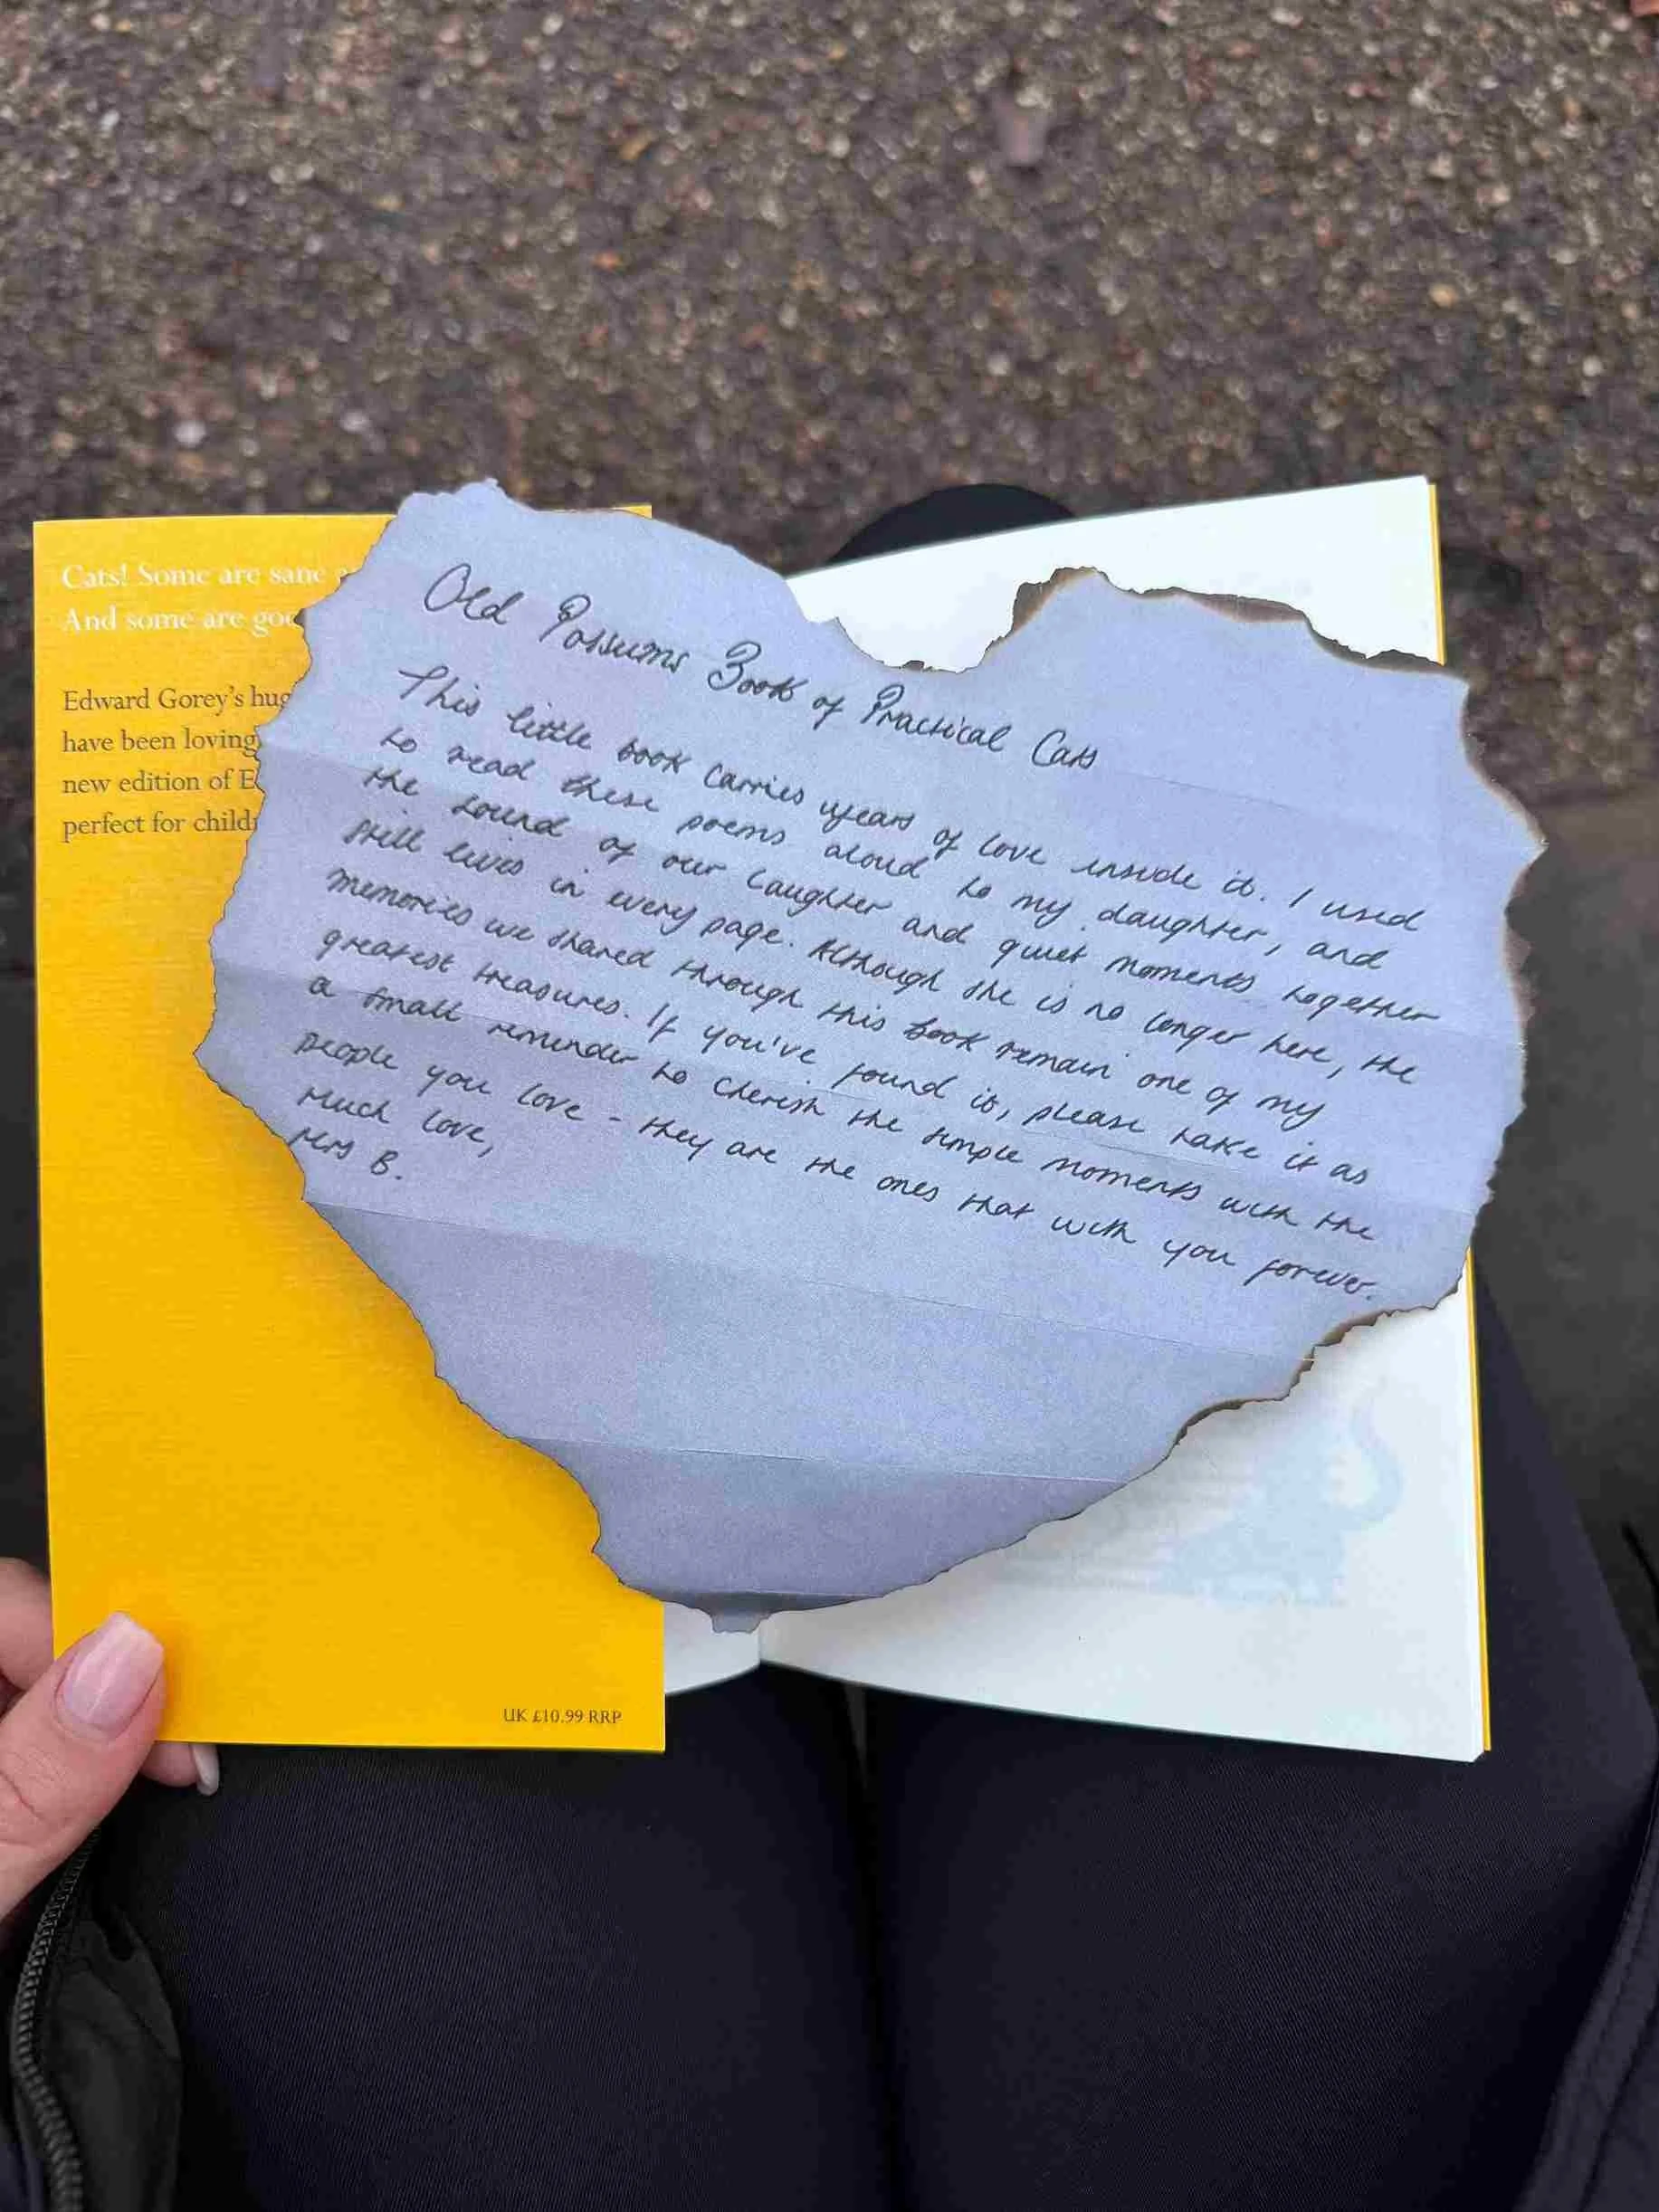 Cats! Some are sane
And some are goo
Edward Gorey's hug
have been loving
new edition of E
perfect for child
Old Possums Book of Practical Cats
This little book carries years of love inside it. I used
to read these poems aloud to my daughter, and
the sound of our laughter and quiet moments together
still lives in every page. Although she is no longer here, the
memories we shared through this book remain one of my
greatest treasures. If you've found it, please take it as
a small reminder to cherish the simple moments with the
people you love - they are the ones that with you forever.
Much love,
Mrs B.
UK £10.99 RRP